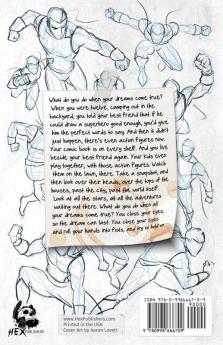 What do you do when your dreams come true?
When you were twelve, camping out in the
backyard, you told your best friend that if he
could draw a superhero good enough, you'd give
him the perfect words to say. And then it didn't
just happen, there's even action figures now.
Your comic book is on every shelf. And you live
beside your best friend again. Your kids even
play together, with those action figures. Watch
them on the lawn, there. Take a snapshot, and
then look over their heads, over the tops of the
houses, past the city, past the world itself.
Look at all the stars, at all the adventures
waiting out there. What do you do when all
your dreams come true? You close your eyes
so the dream can last. You close your eyes
and roll your hands into fists, and try to hold on
HEX PUBLISHERS
www.HexPublishers.com
Printed in the USA
Cover Art by Aaron Lovett
ISBN 978-0-9986667-0-9
90000
9 780998 666709